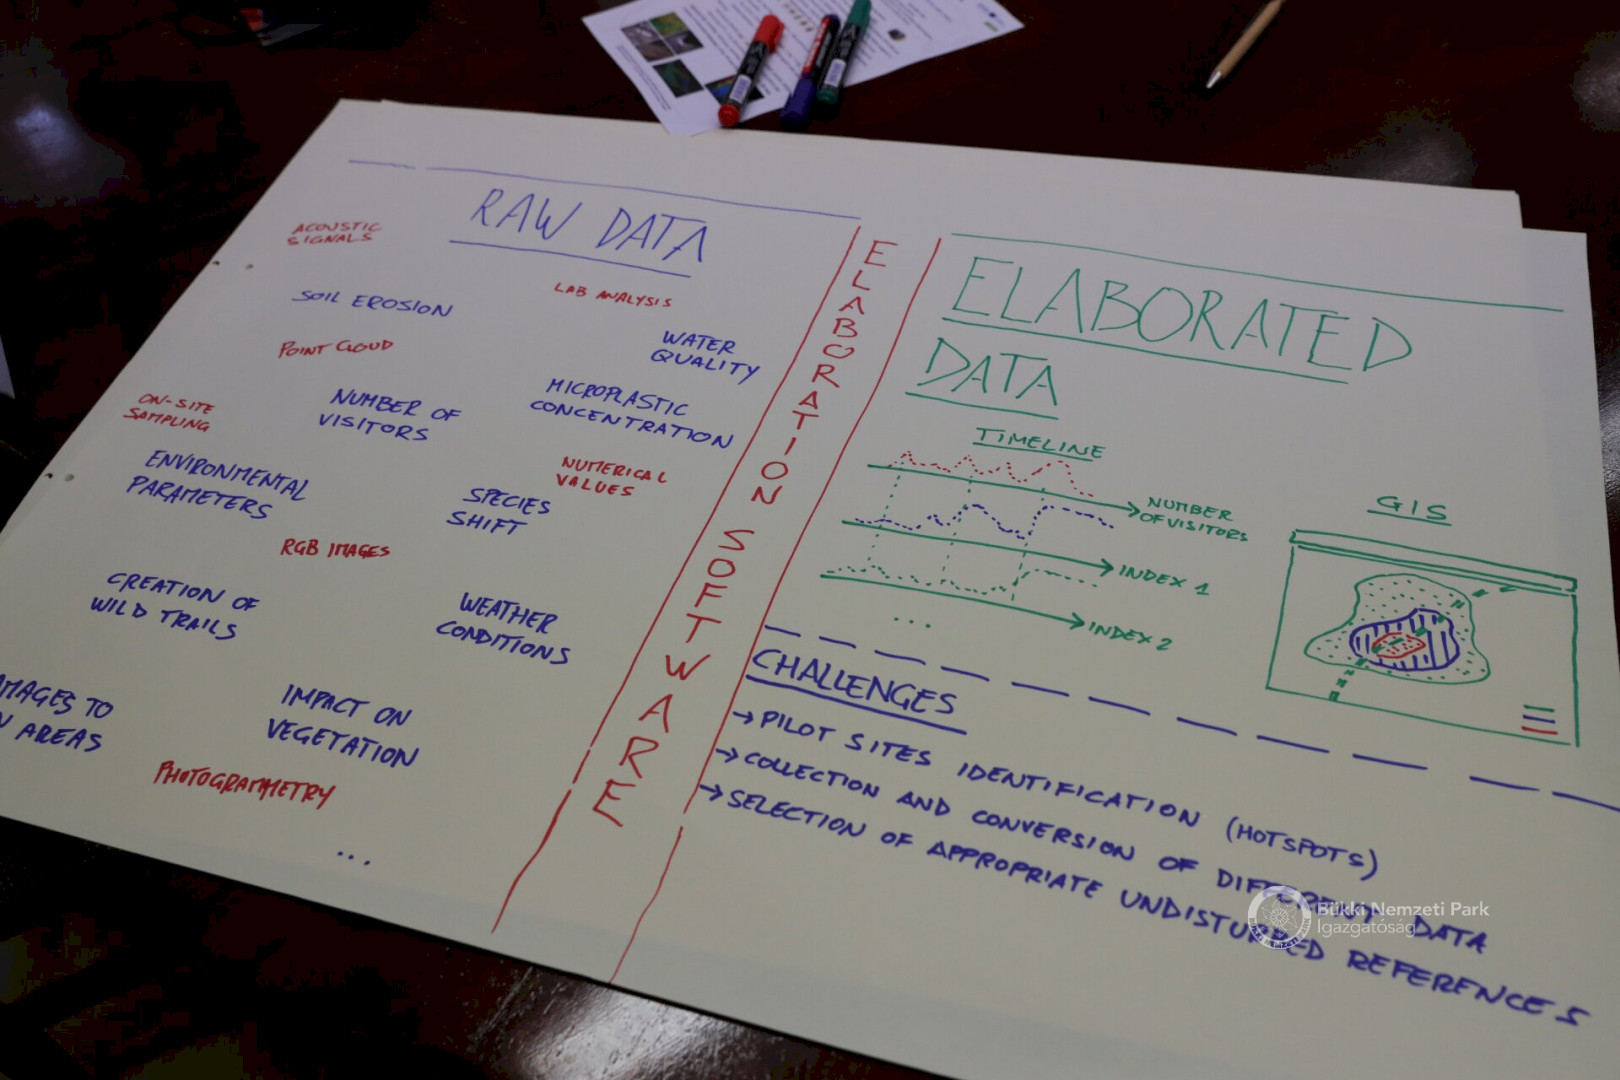 RAW DATA
ACOUSTIC
SIGNALS
LAB ANALYSIS
SOIL EROSION
WATER
QUALITY
POINT CLOUD
MICROPLASTIC
CONCENTRATION
ON-SITE
SAMPLING
NUMBER OF
VISITORS
NUMERICAL
VALUES
ENVIRONMENTAL
PARAMETERS
SPECIES
SHIFT
RGB IMAGES
CREATION OF
WILD TRAILS
WEATHER
CONDITIONS
AMAGES TO
AREAS
IMPACT ON
VEGETATION
PHOTOGRAMMETRY
...
ELABORATION SOFTWARE
ELABORATED
DATA
TIMELINE
NUMBER
OF VISITORS
INDEX 1
INDEX 2
...
GIS
CHALLENGES
→ PILOT SITES IDENTIFICATION (HOTSPOTS)
→ COLLECTION AND CONVERSION OF DIFFERENT DATA
→ SELECTION OF APPROPRIATE UNDISTURBED REFERENCES
Bükki Nemzeti Park
Igazgatóság